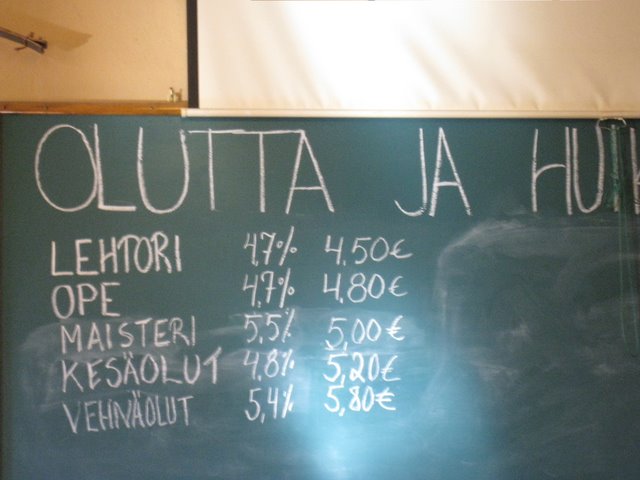 OLUTTA JA
LEHTORI 4,7% 4,50€
OPE 4,7% 4,80€
MAISTERI 5,5% 5,00€
KESÄOLUT 4,8% 5,20€
VEHNÄOLUT 5,4% 5,80€